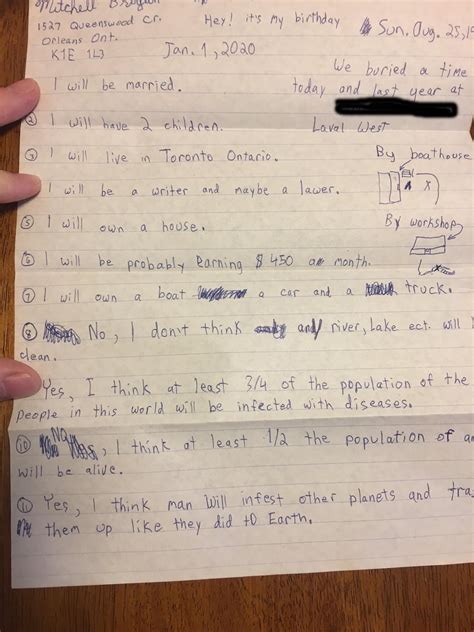 Mitchell
1527 Queenswood Cr. Hey! it's my birthday
Orleans Ont. Sun. Aug. 25,
K1E 1L3 Jan. 1, 2020
We buried a time
1 will be married. today and last year at
② I will have 2 children. Laval West
③ I will live in Toronto Ontario. By boathouse
I will be a writer and maybe a lawer. X
⑤ I will own a house. By workshop
⑥ I will be probably earning $ 450 a month.
⑦ I will own a boat a car and a truck.
⑧ No, I don't think and river, Lake ect. will
clean.
Yes, I think at least 3/4 of the population of the
people in this world will be infected with diseases.
⑩ No, I think at least 1/2 the population of
will be alive.
⑪ Yes, I think man will infest other planets and
them up like they did to Earth.